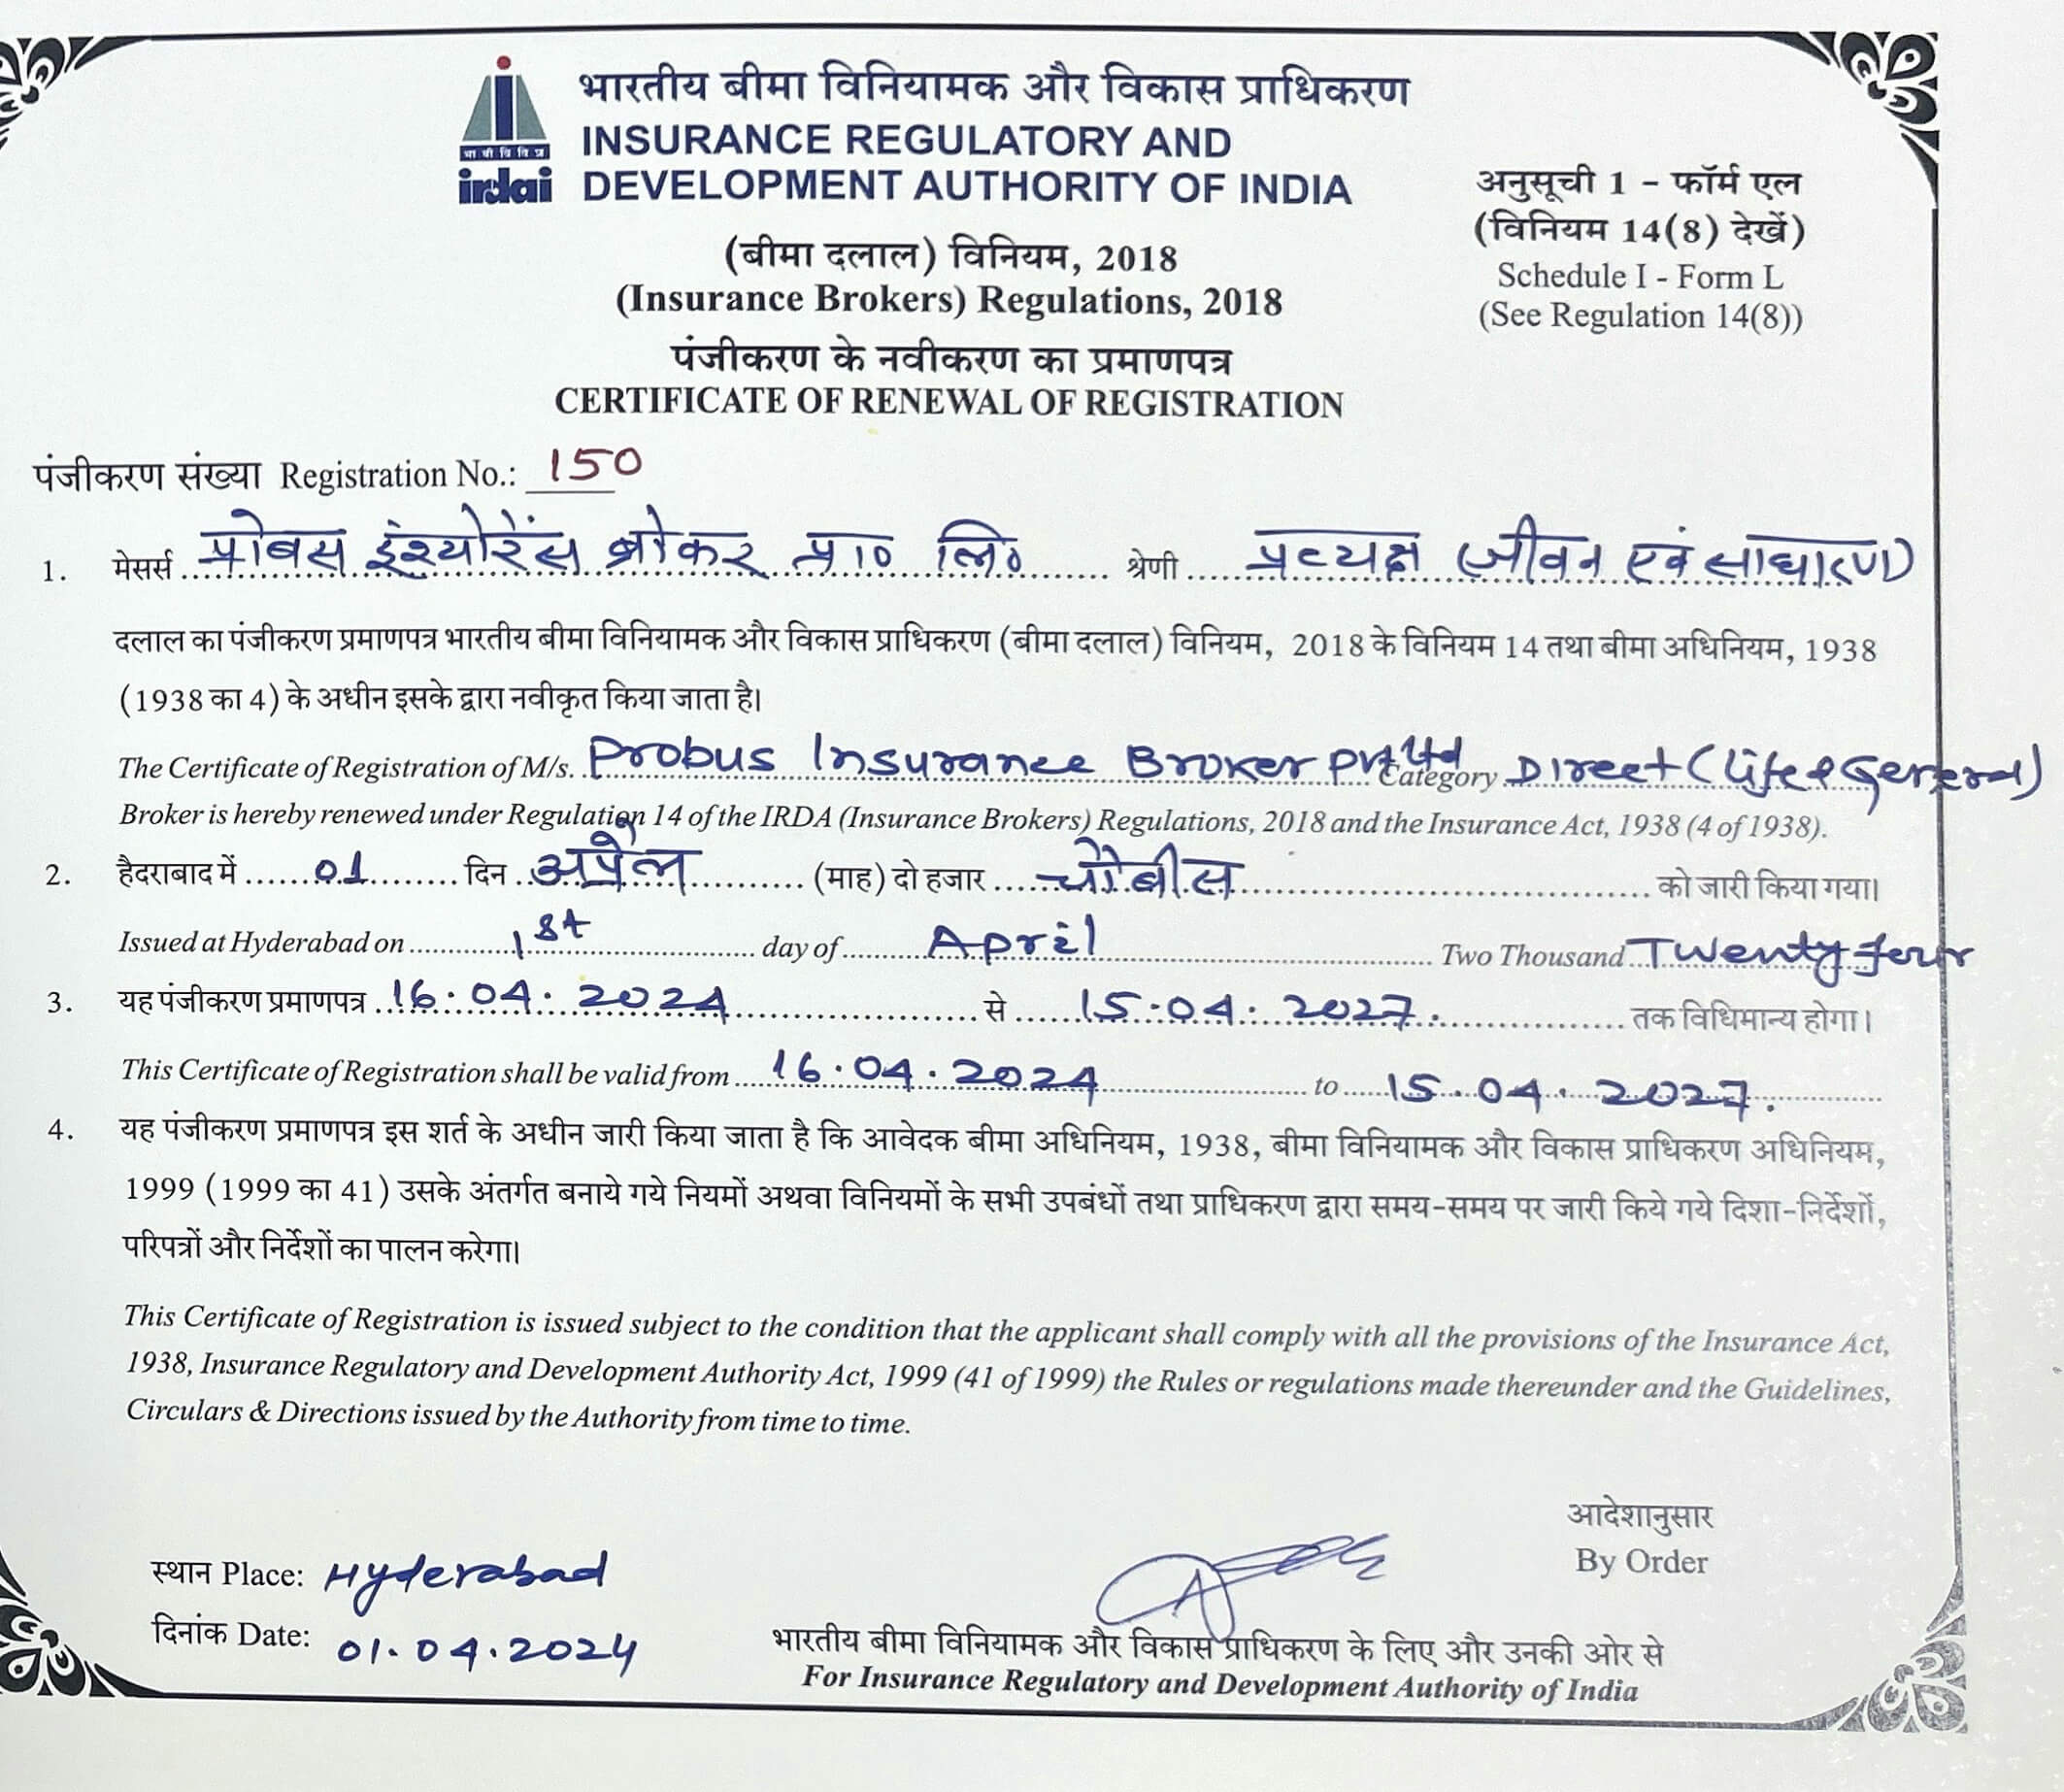 भारतीय बीमा विनियामक और विकास प्राधिकरण
INSURANCE REGULATORY AND
DEVELOPMENT AUTHORITY OF INDIA
भा बी वि वि प्र
irdai
अनुसूची 1 - फॉर्म एल
(विनियम 14(8) देखें)
Schedule I - Form L
(See Regulation 14(8))
(बीमा दलाल) विनियम, 2018
(Insurance Brokers) Regulations, 2018
पंजीकरण के नवीकरण का प्रमाणपत्र
CERTIFICATE OF RENEWAL OF REGISTRATION
पंजीकरण संख्या Registration No.: 150
1. मेसर्स प्रोबस इंश्योरेंस ब्रोकर प्रा० लि० श्रेणी प्रत्यक्ष (जीवन एवं साधारण)
दलाल का पंजीकरण प्रमाणपत्र भारतीय बीमा विनियामक और विकास प्राधिकरण (बीमा दलाल) विनियम, 2018 के विनियम 14 तथा बीमा अधिनियम, 1938
(1938 का 4) के अधीन इसके द्वारा नवीकृत किया जाता है।
The Certificate of Registration of M/s. Probus Insurance Broker Pvt Ltd Category Direct (Life & General)
Broker is hereby renewed under Regulation 14 of the IRDA (Insurance Brokers) Regulations, 2018 and the Insurance Act, 1938 (4 of 1938).
2. हैदराबाद में 01 दिन अप्रैल (माह) दो हजार चौबीस को जारी किया गया।
Issued at Hyderabad on 1st day of April Two Thousand Twenty four
3. यह पंजीकरण प्रमाणपत्र 16.04.2024 से 15.04.2027. तक विधिमान्य होगा।
This Certificate of Registration shall be valid from 16.04.2024 to 15.04.2027.
4. यह पंजीकरण प्रमाणपत्र इस शर्त के अधीन जारी किया जाता है कि आवेदक बीमा अधिनियम, 1938, बीमा विनियामक और विकास प्राधिकरण अधिनियम,
1999 (1999 का 41) उसके अंतर्गत बनाये गये नियमों अथवा विनियमों के सभी उपबंधों तथा प्राधिकरण द्वारा समय-समय पर जारी किये गये दिशा-निर्देशों,
परिपत्रों और निर्देशों का पालन करेगा।
This Certificate of Registration is issued subject to the condition that the applicant shall comply with all the provisions of the Insurance Act,
1938, Insurance Regulatory and Development Authority Act, 1999 (41 of 1999) the Rules or regulations made thereunder and the Guidelines,
Circulars & Directions issued by the Authority from time to time.
आदेशानुसार
By Order
स्थान Place: Hyderabad
दिनांक Date: 01.04.2024
भारतीय बीमा विनियामक और विकास प्राधिकरण के लिए और उनकी ओर से
For Insurance Regulatory and Development Authority of India